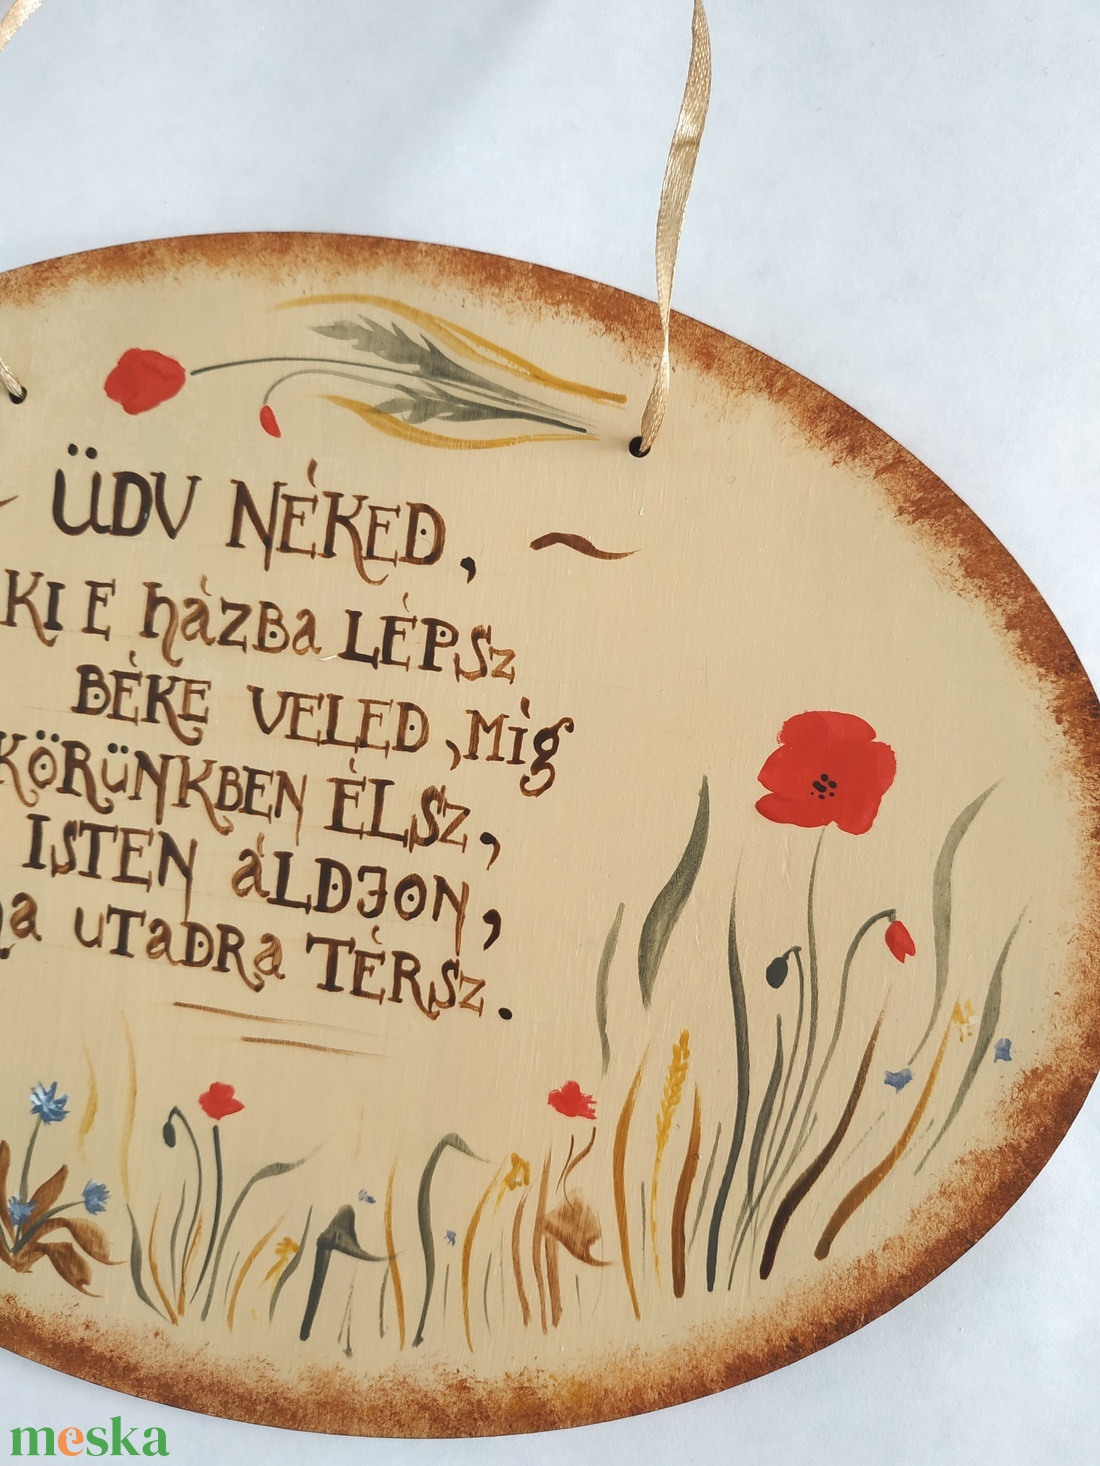 ÜDV NÉKED,
KI E házba LÉPSz
BÉKE VELED, Míg
KÖRÜNKBEN ÉLSz,
ISTEN áLDJON,
utadra TÉRSz.
meska